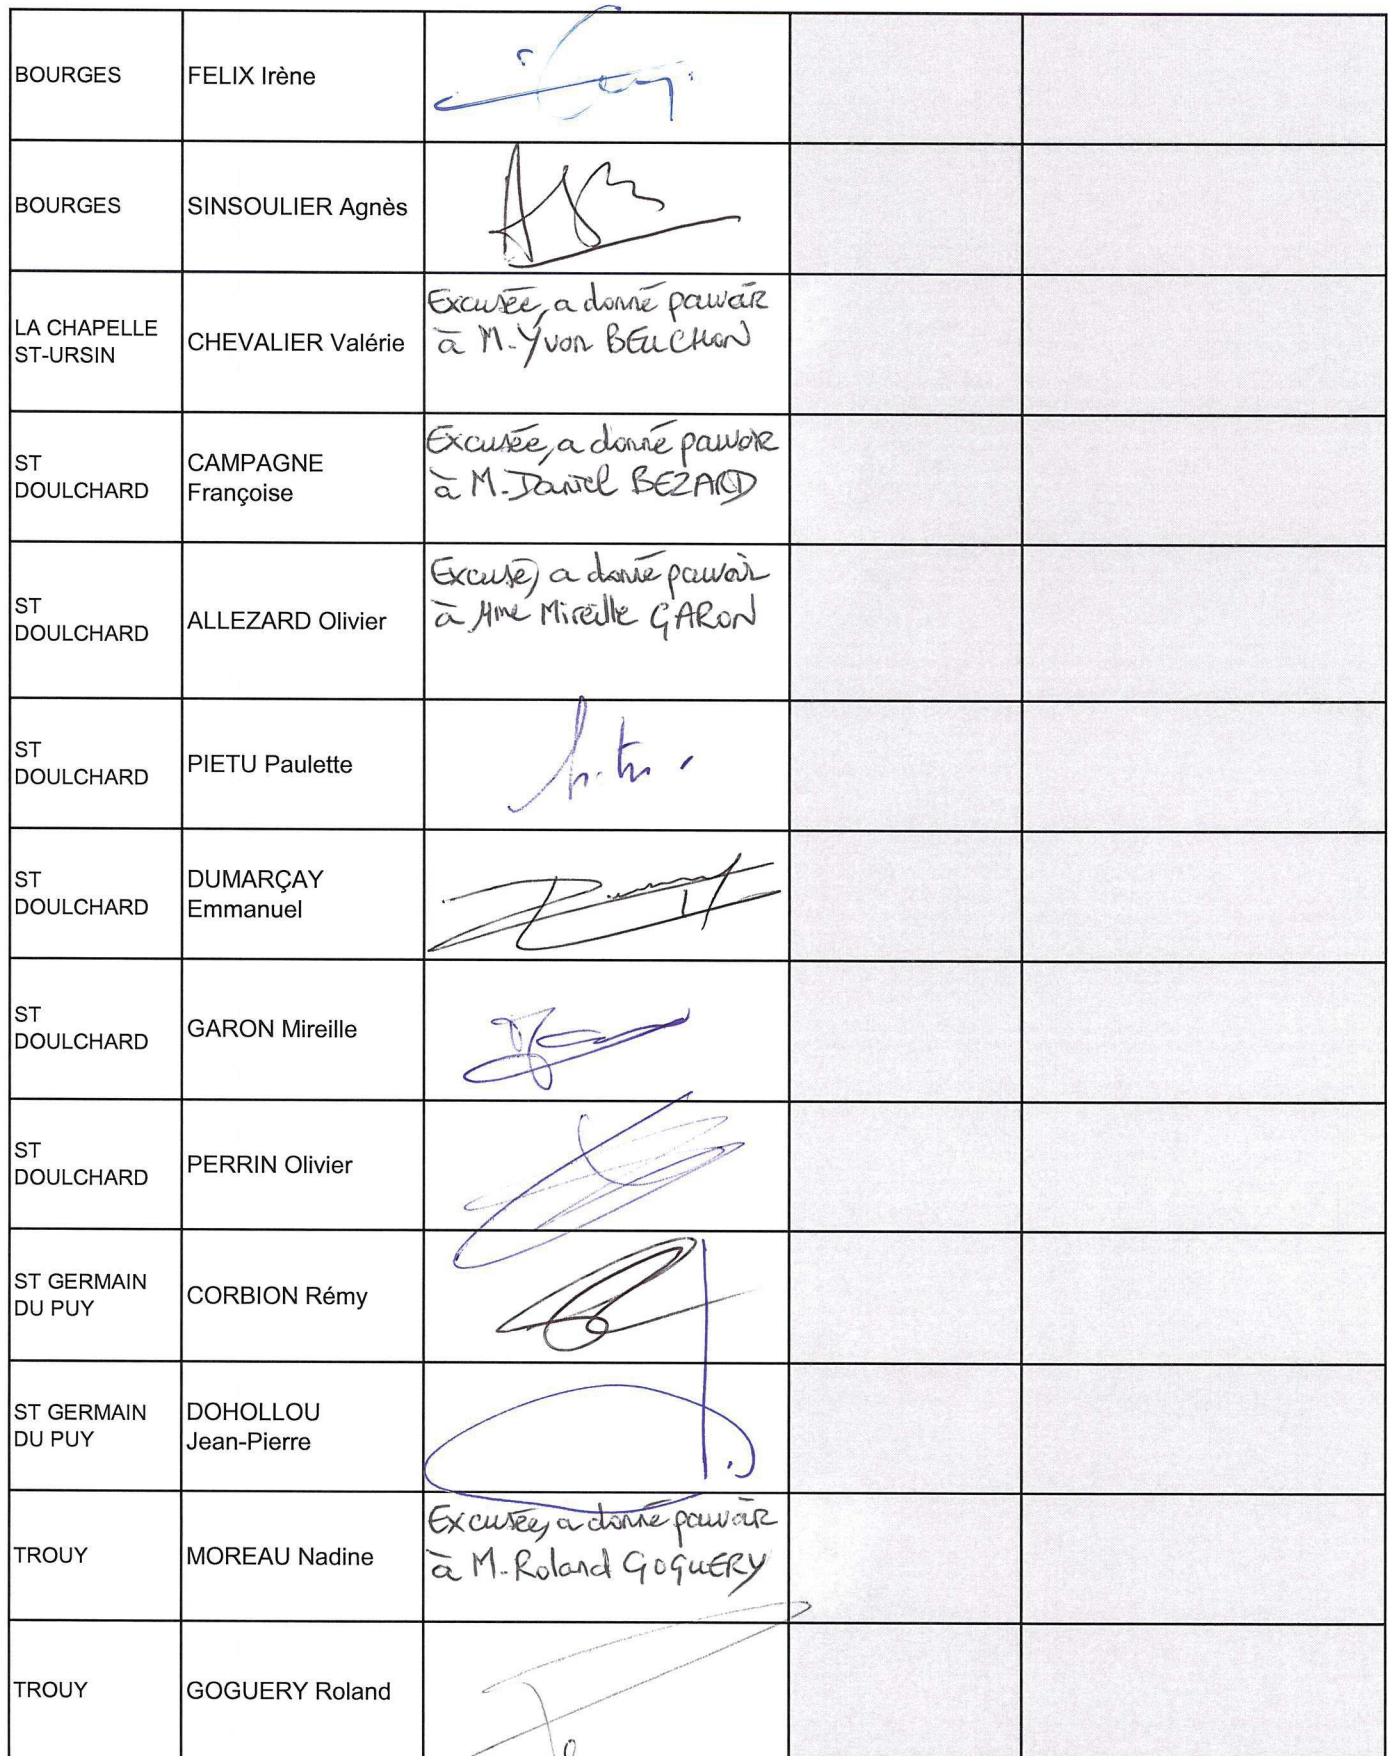 BOURGES
FELIX Irène
BOURGES
SINSOULIER Agnès
LA CHAPELLE
ST-URSIN
CHEVALIER Valérie
Excusée, a donné pouvoir
à M. Yvon BEUCHON
ST
DOULCHARD
CAMPAGNE
Françoise
Excusée, a donné pouvoir
à M. Daniel BEZARD
ST
DOULCHARD
ALLEZARD Olivier
Excusé, a donné pouvoir
à Mme Mireille GARON
ST
DOULCHARD
PIETU Paulette
ST
DOULCHARD
DUMARÇAY
Emmanuel
ST
DOULCHARD
GARON Mireille
ST
DOULCHARD
PERRIN Olivier
ST GERMAIN
DU PUY
CORBION Rémy
ST GERMAIN
DU PUY
DOHOLLOU
Jean-Pierre
TROUY
MOREAU Nadine
Excusée, a donné pouvoir
à M. Roland GOGUERY
TROUY
GOGUERY Roland